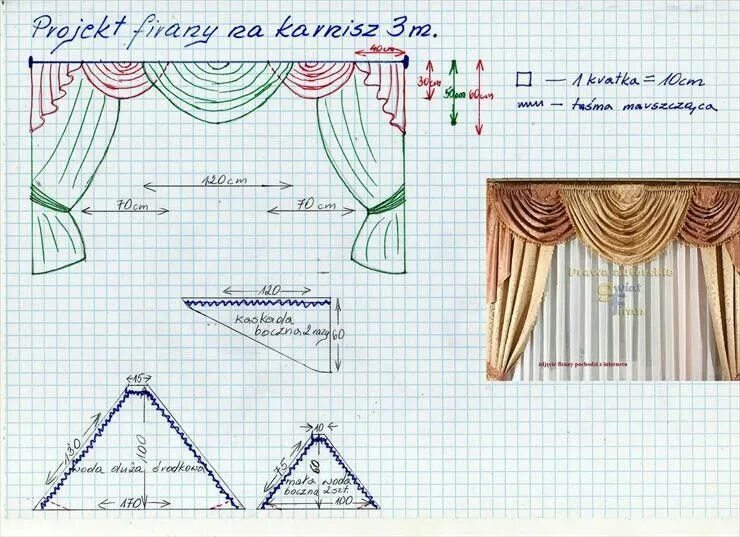 Projekt firany na karnisz 3m.
40cm
30cm
50cm
60cm
1 kratka = 10cm
taśma marszcząca
120cm
70cm
70cm
120
kaskada
boczna 2 razy
60
Prawa autorskie
Świat
Firan
zdjęcie firany pochodzi z internetu
15
130
100
woda duża środkowa
170
10
75
60
mała woda
boczna 2szt.
100